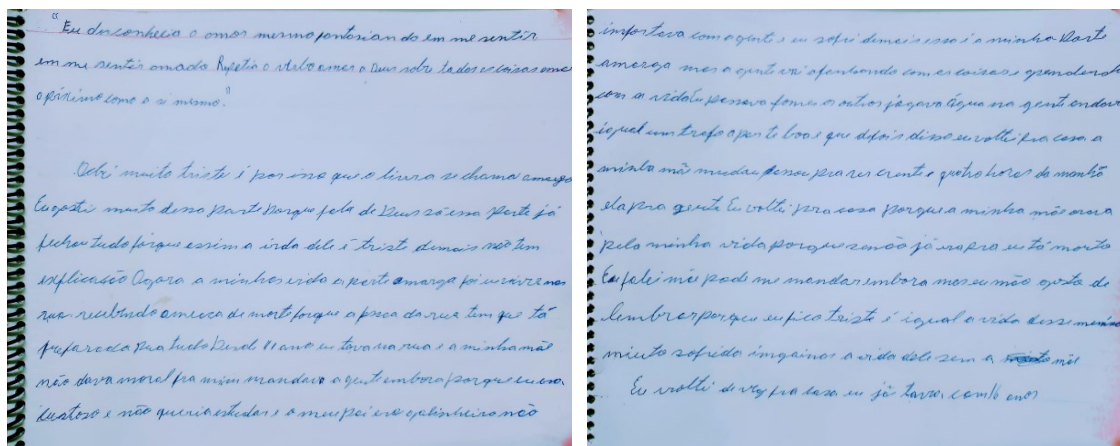 "Eu desconhecia o amor mesmo fantasiando em me sentir
em me sentir amado Repetia o verbo amar a Deus sobre todas as coisas amar
o próximo como a si mesmo."
Achei muito triste é por isso que o livro se chama amargo
Eu gostei muito dessa parte porque fala de Deus só essa parte já
fechou tudo porque assim a vida dele é triste demais não tem
explicação Agora a minha vida a parte amarga foi eu viver nas
rua recebendo ameaca de morte porque a pessoa da rua tem que tá
preparada pra tudo Desde 11 ano eu tava na rua e a minha mãe
não dava moral pra mim mandava a gente embora porque eu era
custoso e não queria estudar e o meu pai era galinheiro não
importava com a gente e eu sofri demais essa é a minha Parte
amarga mas a gente vai afundando com as coisas e aprendendo
com a vida Eu passava fome os outros jogava água na gente andava
igual um trapo a parte boa e que depois disso eu voltei pra casa a
minha mãe mudou passou pra ser crente quatro horas da manhã
ela pra gente Eu voltei pra casa porque a minha mãe orava
pela minha vida porque senão já era pra eu tá morto
Eu falei mãe pode me mandar embora mas eu não gosto de
lembrar porque eu fico triste é igual a vida desse menino
muito sofrido imgaina a vida dele sem a mãe
Eu voltei de vez pra casa eu já tava com 16 anos